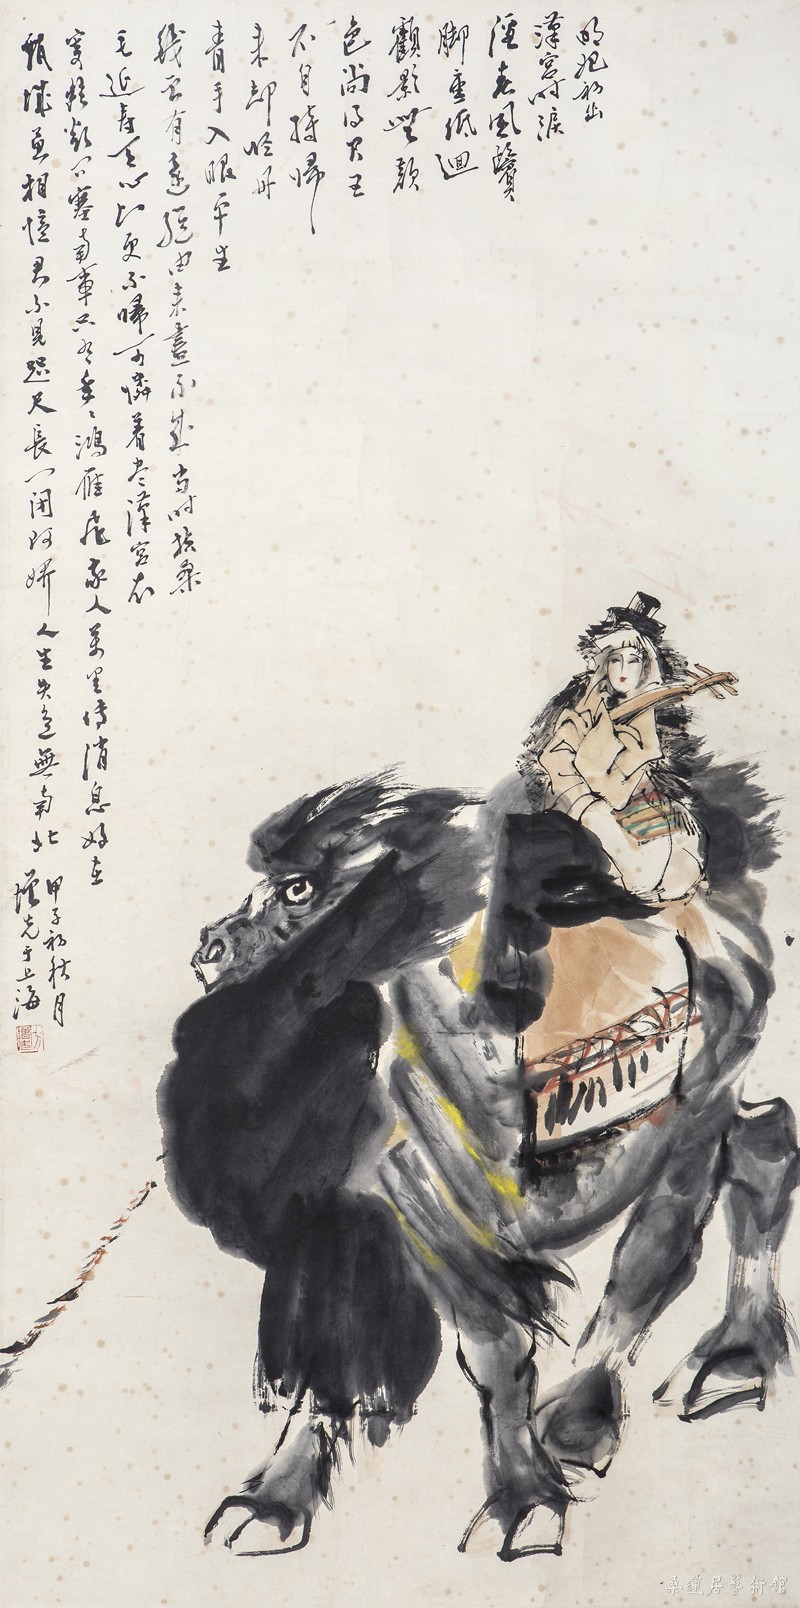 明妃初出
漢宮時淚
溼春風鬢
脚垂低迴
顧影無顏
色尚得君王
不自持歸
來卻怪丹
青手入眼平生
幾曾有意態由來畫不成當時枉殺
毛延壽一去心知更不歸可憐着盡漢宮衣
寄聲欲問塞南事只有年〻鴻雁飛家人萬里傳消息好在
氈城莫相憶君不見咫尺長門閉阿嬌人生失意無南北
甲子初秋月
增先于上海
桑蓮居藝術館